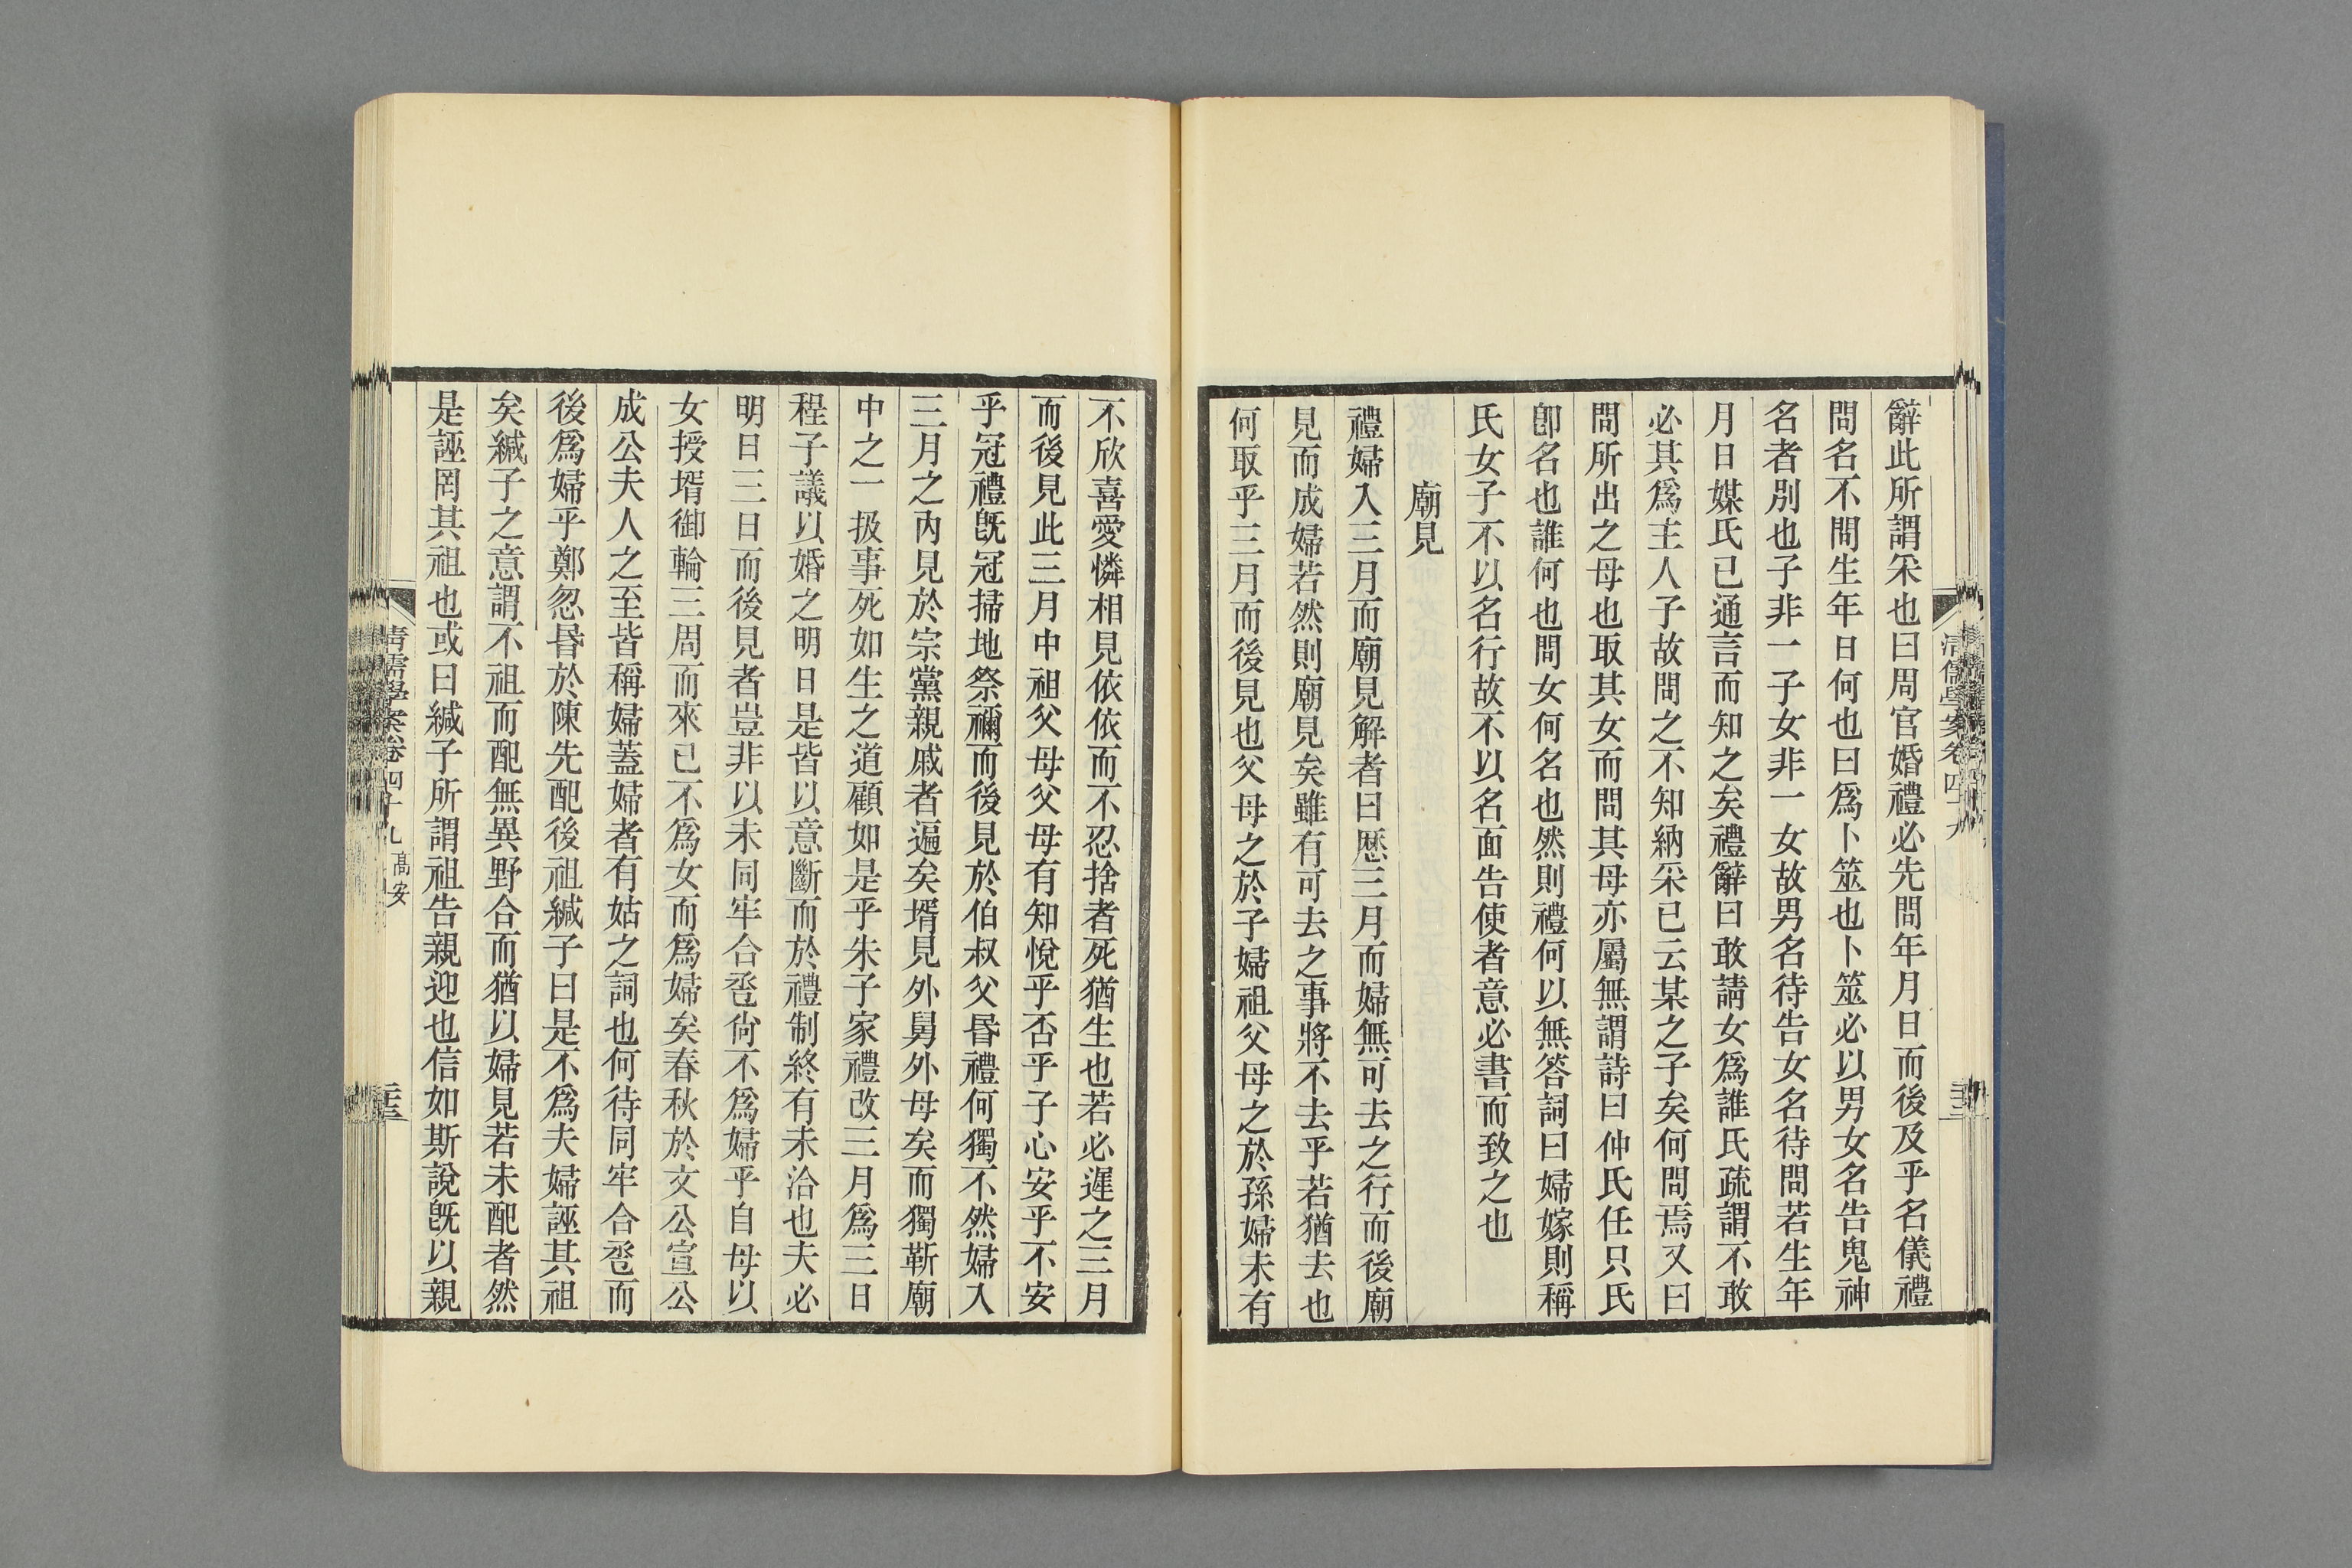 辭此所謂采也曰周官婚禮必先問年月日而後及乎名儀禮
問名不問生年日何也曰爲卜筮也卜筮必以男女名告鬼神
名者別也子非一子女非一女故男名待告女名待問若生年
月日媒氏已通言而知之矣禮辭曰敢請女爲誰氏疏謂不敢
必其爲主人子故問之不知納采已云某之子矣何問焉又曰
問所出之母也取其女而問其母亦屬無謂詩曰仲氏任只氏
卽名也誰何也問女何名也然則禮何以無答詞曰婦嫁則稱
氏女子不以名行故不以名面告使者意必書而致之也
廟見
禮婦入三月而廟見解者曰歷三月而婦無可去之行而後廟
見而成婦若然則廟見矣雖有可去之事將不去乎若猶去也
何取乎三月而後見也父母之於子婦祖父母之於孫婦未有
不欣喜愛憐相見依依而不忍捨者死猶生也若必遲之三月
而後見此三月中祖父母父母有知悅乎否乎子心安乎不安
乎冠禮旣冠掃地祭禰而後見於伯叔父昬禮何獨不然婦入
三月之內見於宗黨親戚者遍矣壻見外舅外母矣而獨靳廟
中之一扱事死如生之道顧如是乎朱子家禮改三月爲三日
程子議以婚之明日是皆以意斷而於禮制終有未洽也夫必
明日三日而後見者豈非以未同牢合巹尙不爲婦乎自母以
女授壻御輪三周而來已不爲女而爲婦矣春秋於文公宣公
成公夫人之至皆稱婦蓋婦者有姑之詞也何待同牢合巹而
後爲婦乎鄭忽昬於陳先配後祖緘子曰是不爲夫婦誣其祖
矣緘子之意謂不祖而配無異野合而猶以婦見若未配者然
是誣罔其祖也或曰緘子所謂祖告親迎也信如斯說旣以親
清儒學案卷四十九 高安